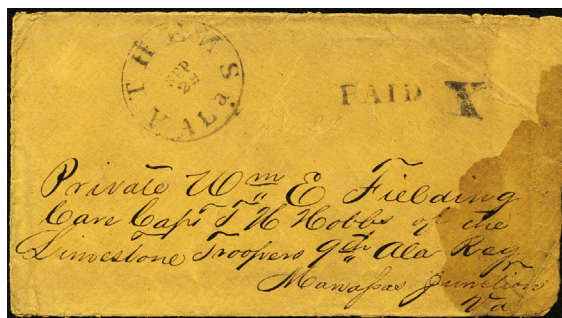 ATHENS
SEP
2
ALa.
PAID X
Private Wm E Fielding
Care Capt T H Hobbs of the
Limestone Troopers 9th Ala Reg
Manassas Junction
Va